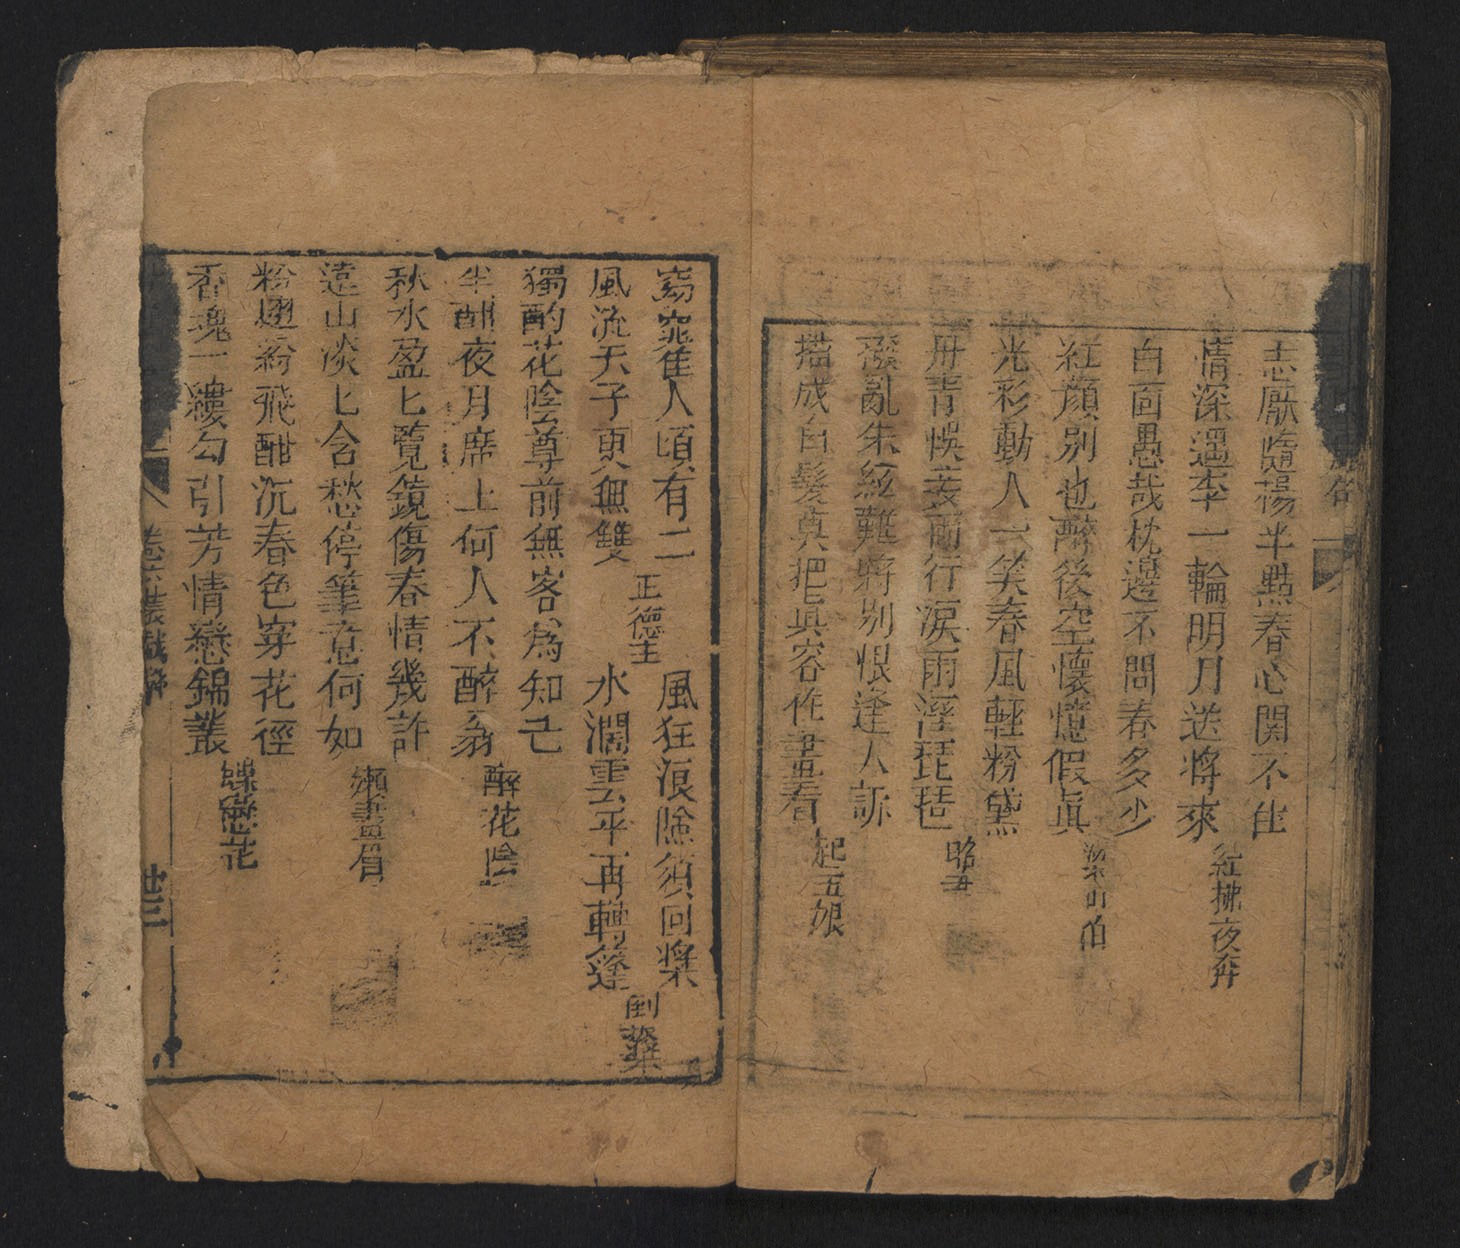 志厭隨楊半點春心関不住
情深遇李一輪明月送將來
紅拂夜奔
白面愚哉枕邊不問春多少
紅顔别也醉後空懷憶假眞
梁山伯
光彩動人一笑春風輕粉黛
丹青悞妾兩行淚雨溼琵琶
昭君
撥亂朱絃難將别恨逢人訴
描成白髮眞把眞容作畫看
趙五娘
窈窕佳人頃有二
風流天子更無雙
正德主
風狂浪險須回槳
水濶雲平再轉篷
倒槳
獨酌花陰尊前無客爲知己
半酣夜月席上何人不醉翁
醉花陰
秋水盈匕覽鏡傷春情幾許
遠山淡匕含愁停筆意何如
嬾畫眉
粉翅紛飛酣沉春色穿花徑
香魂一縷勾引芳情戀錦叢
蝶戀花
卷六叢戲
廿三